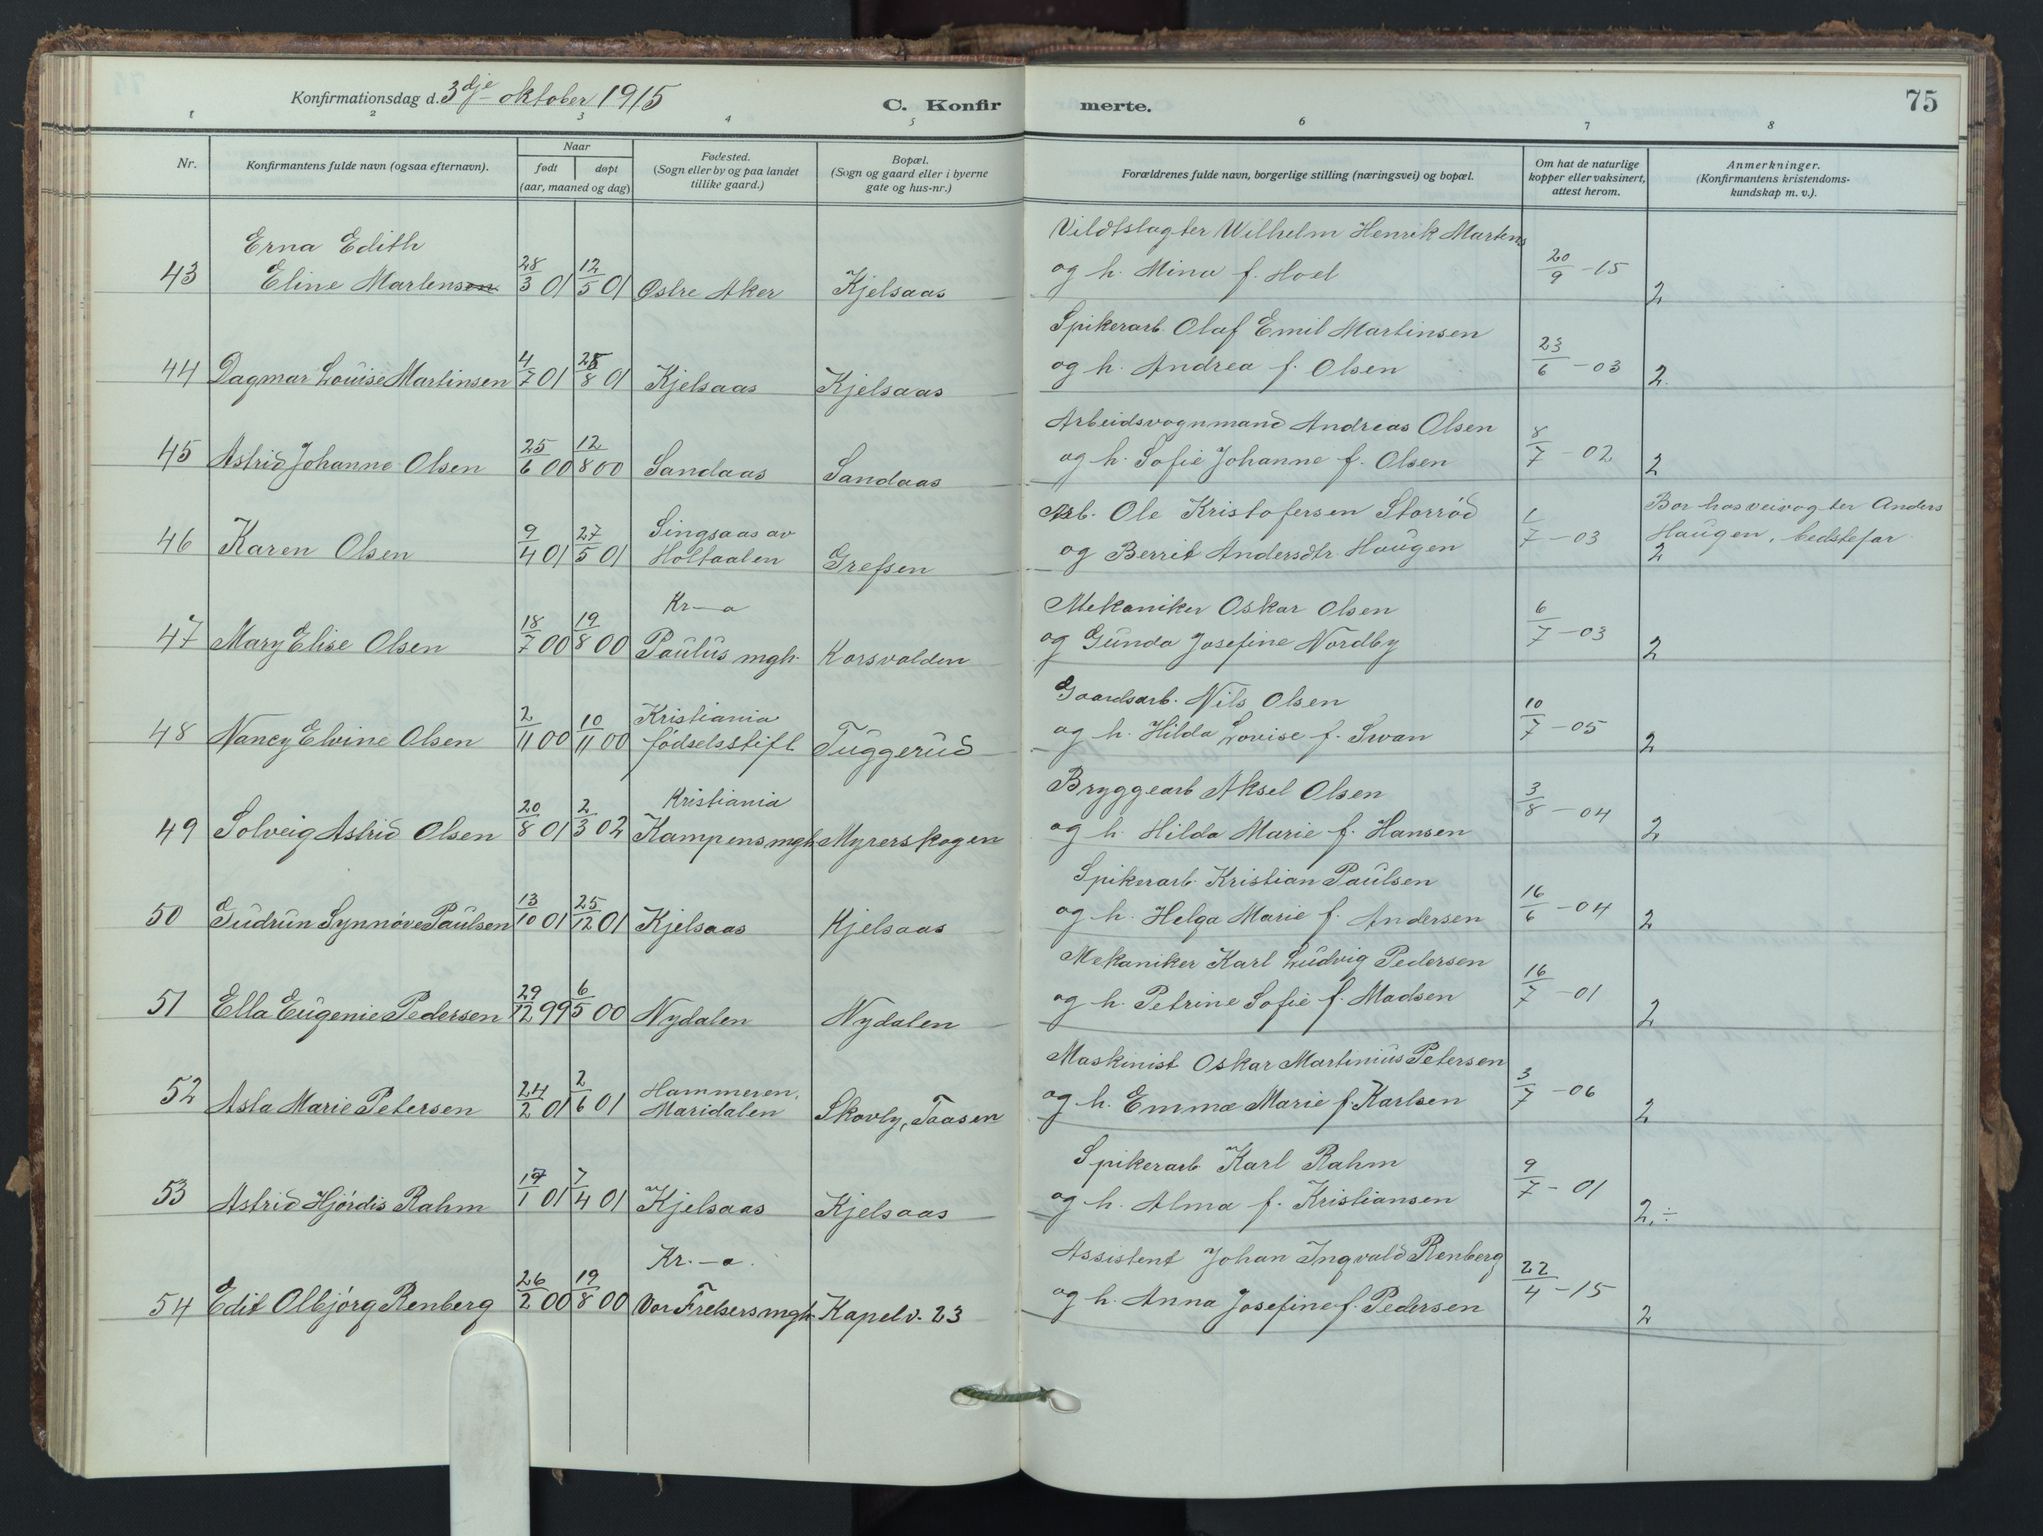 Konfirmationsdag d. 3dje oktober 1915
C. Konfir merte. 75
1 2 3 4 5 6 7 8
Nr.
Konfirmantens fulde navn (ogsaa efternavn).
Naar
født døpt
(aar, maaned og dag)
Fødested.
(Sogn eller by og paa landet
tillike gaard.)
Bopæl.
(Sogn og gaard eller i byerne
gate og hus-nr.)
Forældrenes fulde navn, borgerlige stilling (næringsvei) og bopæl.
Om hat de naturlige
kopper eller vaksinert,
attest herom.
Anmerkninger.
(Konfirmantens kristendoms-
kundskap m. v.).
Erna Edith Vildtslagter Wilhelm Henrik Martens
43 Eline Martensen 28/3 01 12/5 01 Østre Aker Kjelsaas og h. Mina f. Hoel 20/9 -15 2
Spikerarb. Olaf Emil Martinsen
44 Dagmar Louise Martinsen 4/7 01 25/8 01 Kjelsaas Kjelsaas og h. Andrea f. Olsen 23/6 -03 2.
Arbeidsvognmand Andreas Olsen
45 Astrid Johanne Olsen 25/6 00 12/8 00 Sandaas Sandaas og h. Sofie Johanne f. Olsen 8/7 -02 2
Singsaas av Arb. Ole Kristofersen Storrød Bor hos veivogter Anders
46 Karen Olsen 9/4 01 27/5 01 Holtaalen Grefsen og Berrit Andersdtr. Haugen 1/7 -03 Haugen, bedstefar
2
Kr-a Mekaniker Oskar Olsen
47 Mary Elise Olsen 18/7 00 19/8 00 Paulus mgh. Korsvolden og Gunda Josefine Nordby 6/7 -03 2
Kristiania Gaardsarb. Nils Olsen
48 Nancy Elvine Olsen 2/11 00 10/11 00 fødselsstift Tuggerud og h. Hilda Lovise f. Svan 10/7 -05 2
Kristiania Bryggearb Aksel Olsen
49 Solveig Astrid Olsen 20/8 01 2/3 02 Kampens mgh. Myrerskogen og h. Hilda Marie f. Hansen 3/8 -04 2
Spikerarb. Kristian Paulsen
50 Gudrun Synnøve Paulsen 13/10 01 25/12 01 Kjelsaas Kjelsaas og h. Helga Marie f. Andersen 16/6 -04 2
Mekaniker Karl Ludvig Pedersen
51 Ella Eugenie Pedersen 29/12 99 6/5 00 Nydalen Nydalen og h. Petrine Sofie f. Madsen 16/7 -01 2
Hammeren, Maskinist Oskar Martinius Petersen
52 Asta Marie Petersen 24/2 01 2/6 01 Maridalen Skovly, Taasen og h. Emma Marie f. Karlsen 3/7 -06 2
Spikerarb. Karl Rahm
53 Astrid Hjørdis Rahm 17/1 01 7/4 01 Kjelsaas Kjelsaas og h. Alma f. Kristiansen 9/7 -01 2,÷
Kr.-a. Assistent Johan Ingvald Renberg
54 Edit Olbjørg Renberg 26/2 00 19/8 00 Vor Frelsers mgh. Kapelv. 23 og h. Anna Josefine f. Pedersen 22/4 -15 2